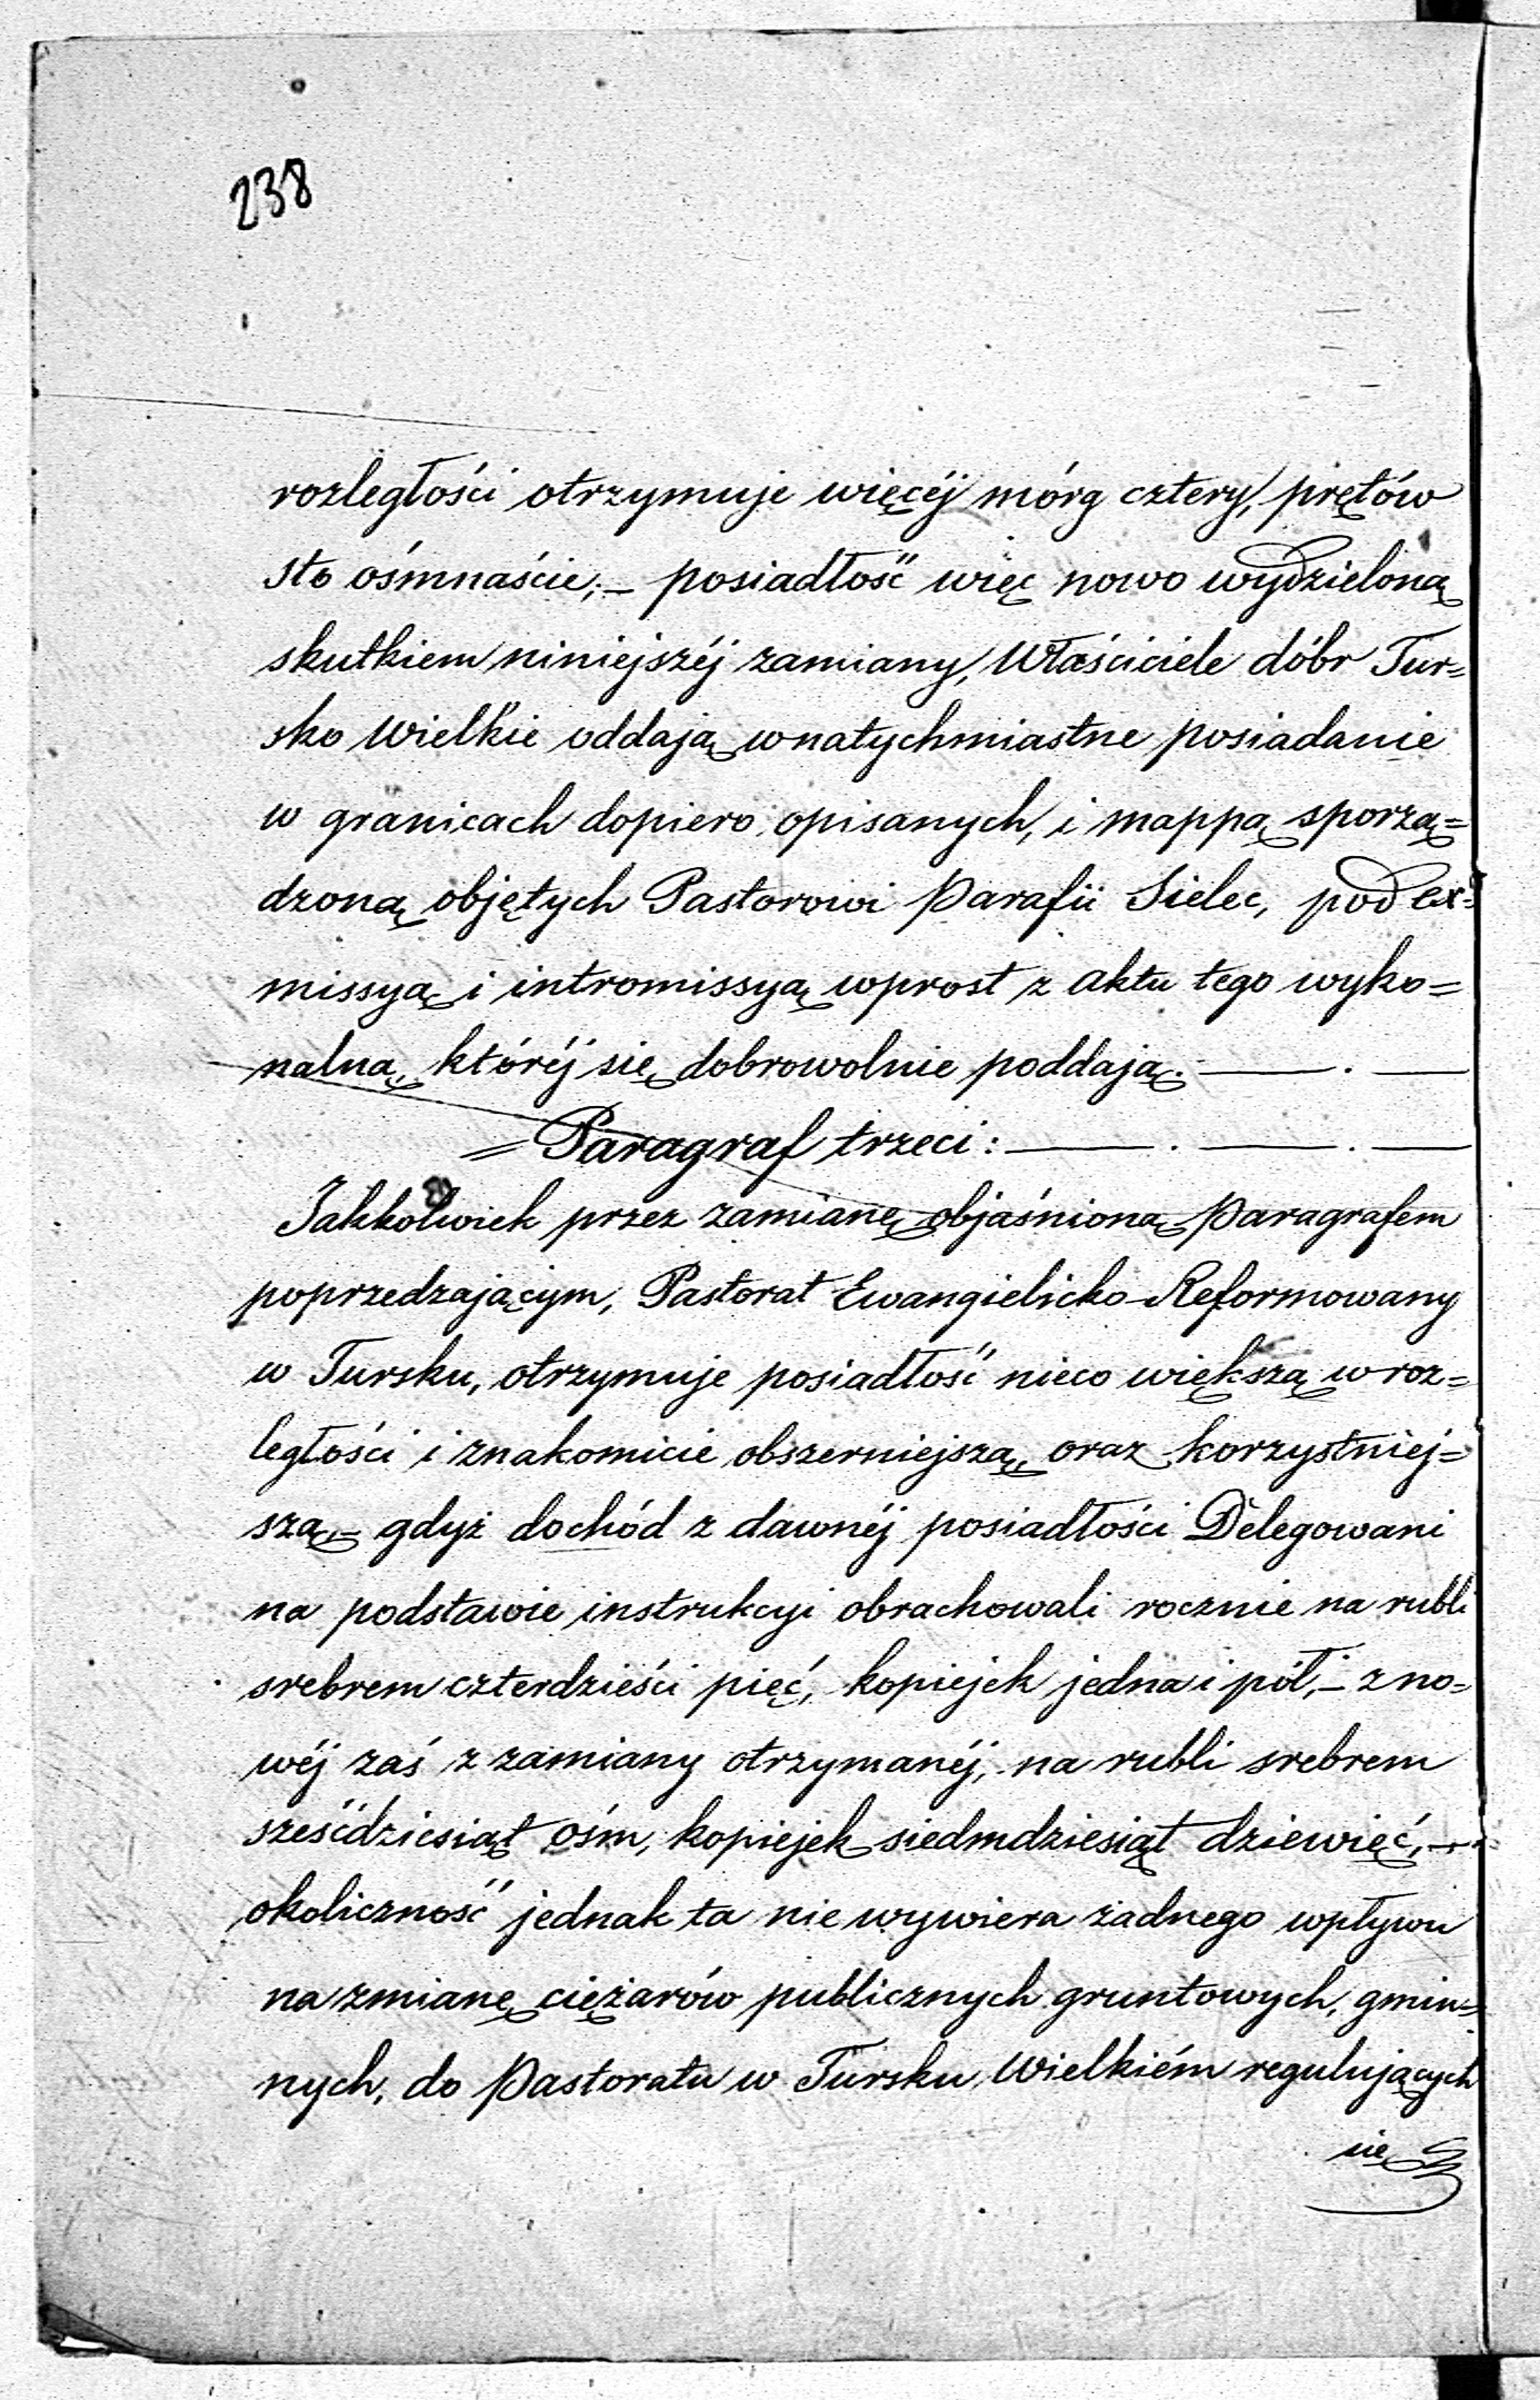 238
rozległości otrzymuje więcéj mórg cztery, prętów
sto ośmnaście; – posiadłość więc nowo wydzieloną
skutkiem niniejszéj zamiany, Właściciele dóbr Tur=
sko Wielkie oddają w natychmiastne posiadanie
w granicach dopiero opisanych, i mappą sporzą=
dzoną objętych Pastorowi Parafii Sielec, pod ex=
missyą i intromissyą wprost z aktu tego wyko=
nalną, któréj się dobrowolnie poddają. — . —
= Paragraf trzeci: — . — . —
Jakkolwiek przez zamianę objaśnioną Paragrafem
poprzedzającym, Pastorat Ewangielicko-Reformowany
w Tursku, otrzymuje posiadłość nieco większą w roz=
ległości i znakomicie obszerniejszą, oraz korzystniej=
szą, – gdyż dochód z dawnéj posiadłości Delegowani
na podstawie instrukcyi obrachowali rocznie na rubli
srebrem czterdzieści pięć, kopiejek jedna i pół, – z no=
wéj zaś z zamiany otrzymanéj, na rubli srebrem
sześćdziesiąt ośm, kopiejek siedmdziesiąt dziewięć, –
okoliczność jednak ta nie wywiera żadnego wpływu
na zmianę ciężarów publicznych gruntowych, gmin=
nych, do Pastoratu w Tursku Wielkiém regulujących
się